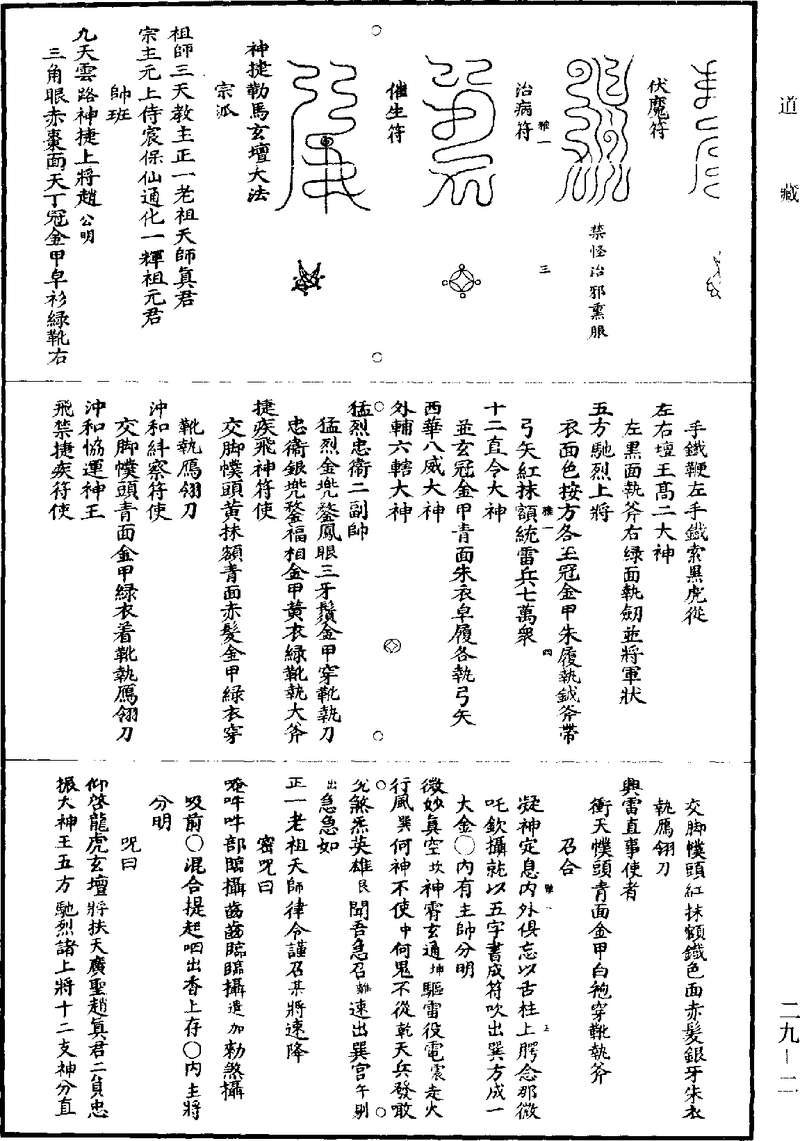 道藏
伏魔符
禁怪治邪熏服
治病符
雅一
三
催生符
神捷勒馬玄壇大法
宗派
祖師三天教主正一老祖天師真君
宗主元上侍宸保仙通化一輝祖元君
帥班
九天雲路神捷上將趙公明
三角眼赤棗面天丁冠金甲皁衫綠靴右
手鐵鞭左手鐵索黑虎從
左右壇王高二大神
左黑面執斧右綠面執劒並將軍狀
五方馳烈上將
衣面色按方各玉冠金甲朱履執鉞斧帶
弓矢紅抹額統雷兵七萬衆
雅一
四
十二直令大神
並玄冠金甲青面朱衣皁履各執弓矢
西華八威大神
外輔六轄大神
猛烈忠衛二副帥
猛烈金兠鍪鳳眼三牙鬚金甲穿靴執刀
忠衛銀兠鍪福相金甲黃衣綠靴執大斧
捷疾飛神符使
交脚幞頭黃抹額青面赤髮金甲綠衣穿
靴執鴈翎刀
沖和糾察符使
交脚幞頭青面金甲綠衣着靴執鴈翎刀
沖和協運神王
飛禁捷疾符使
交脚幞頭紅抹額鐵色面赤髮銀牙朱衣
執鴈翎刀
興雷直事使者
衝天幞頭青面金甲白袍穿靴執斧
召合
凝神定息内外俱忘以舌柱上腭念那微
吒欽攝就以五字書成符吹出巽方成一
大金〇内有主帥分明
微妙真空坎神霄玄通坤驅雷役電震走火
行風巽何神不使中何鬼不從乾天兵發敢
兊煞炁英雄艮聞吾急召離速出巽宫午剔
出急急如
正一老祖天師律令謹召某將速降
密呪曰
唵吽吽部臨攝齒齒臨臨攝遣加勑煞攝
吸前〇混合提起呬出香上存〇内主將
分明
呪曰
仰啓龍虎玄壇將扶天廣聖趙真君二負忠
振大神王五方馳烈諸上將十二支神分直
二九—二